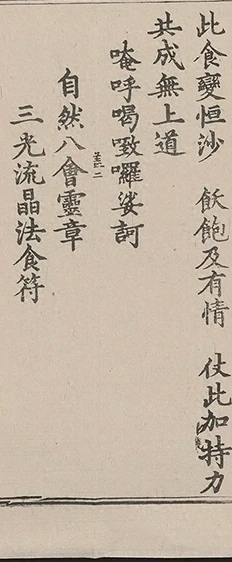 此食變恒沙 飫飽及有情 仗此加特力
共成無上道
唵呼喝囉娑訶
自然八會靈章
三光流晶法食符